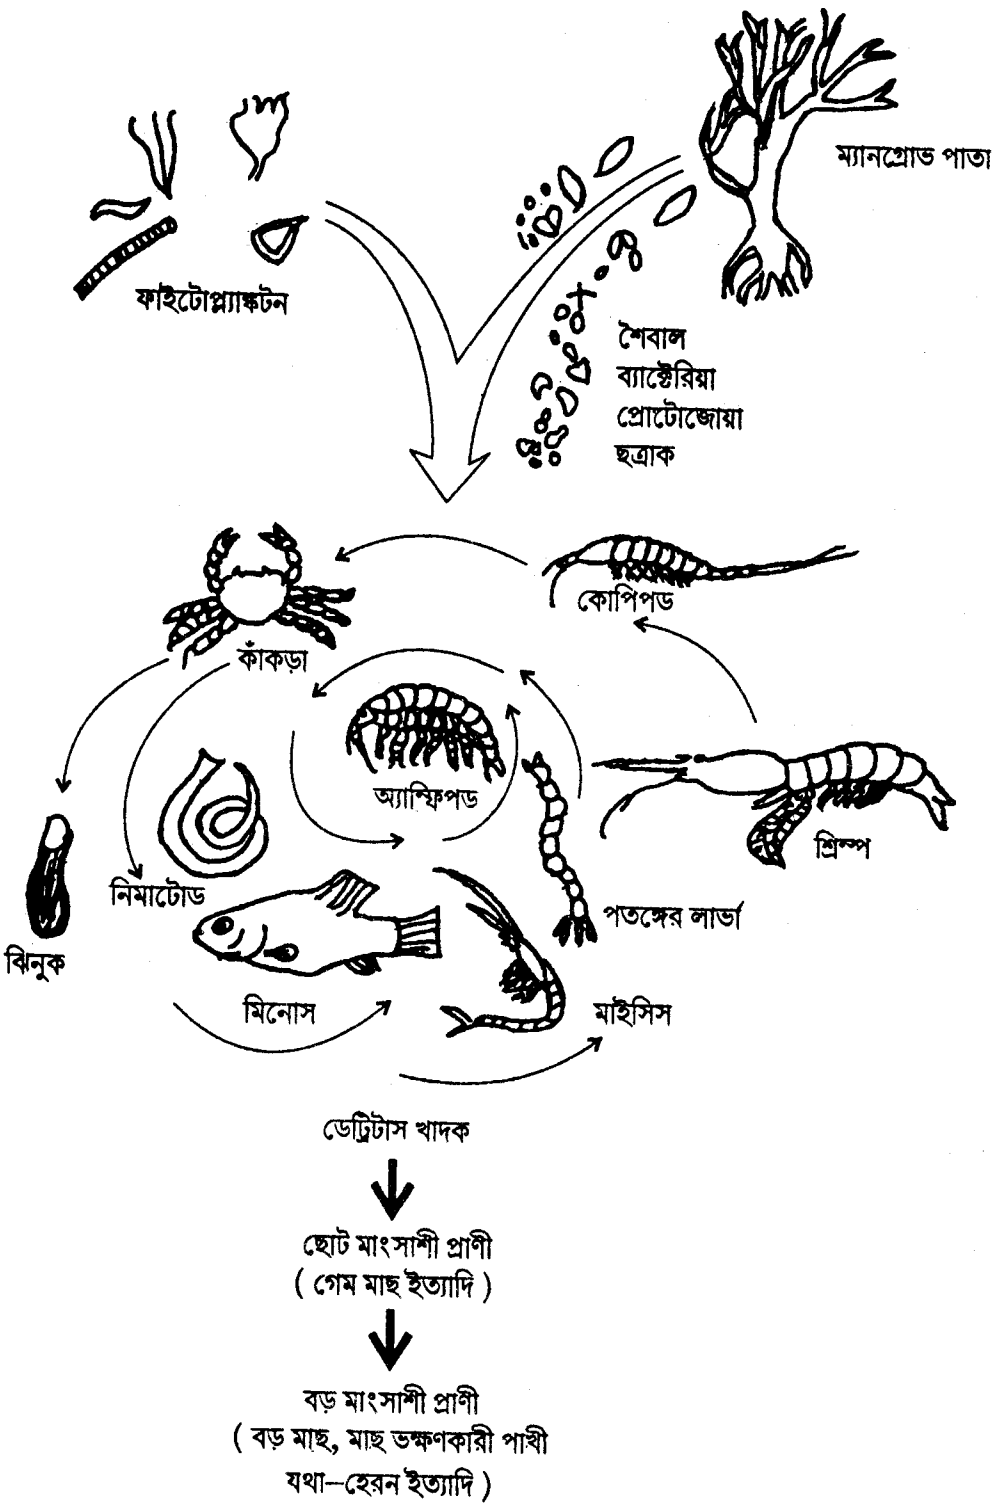 ম্যানগ্রোভ পাতা
ফাইটোপ্ল্যাঙ্কটন
শৈবাল
ব্যাক্টেরিয়া
প্রোটোজোয়া
ছত্রাক
কোপিপড
কাঁকড়া
অ্যাম্ফিপড
শ্রিম্প
নিমাটোড
পতঙ্গের লার্ভা
ঝিনুক
মিনোস
মাইসিস
ডেট্রিটাস খাদক
ছোট মাংসাশী প্রাণী
( গেম মাছ ইত্যাদি )
বড় মাংসাশী প্রাণী
( বড় মাছ, মাছ ভক্ষণকারী পাখী
যথা—হেরন ইত্যাদি )